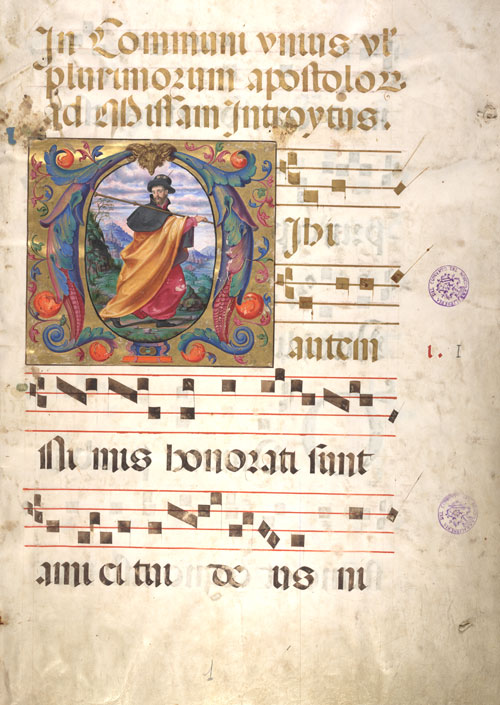 In Communi vnius vl
plurimorum apostoloꝝ
ad Missam Introytus.
MIhi
autem
I. I
Ni mis honorati sunt
ami ci tui de us ni
1